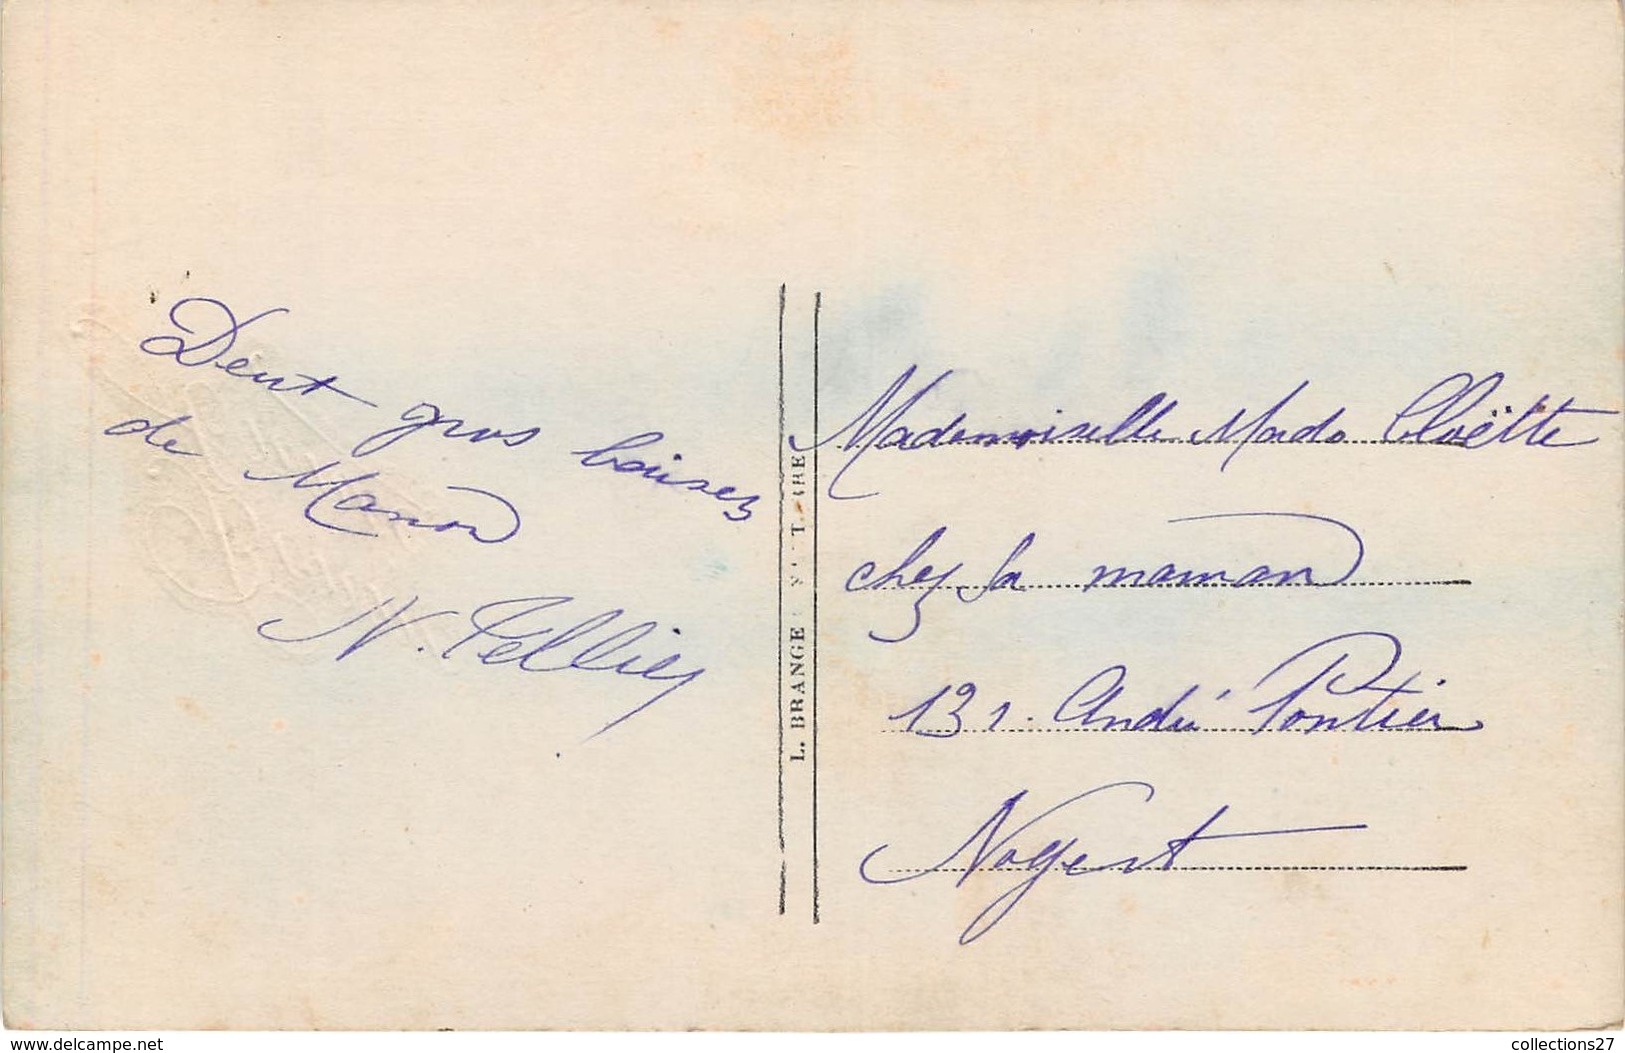 Deux gros baisers
de Manon
N. Tellier
Mademoiselle Mado Cloëtte
chez sa maman
13 r. André Pontier
Nogent
L. BRANGE
www.delcampe.net
collections27